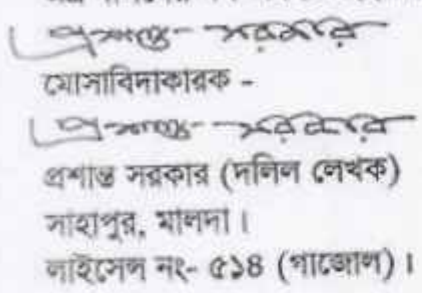 প্রশান্ত সরকার
মোসাবিদাকারক -
প্রশান্ত সরকার
প্রশান্ত সরকার (দলিল লেখক)
সাহাপুর, মালদা।
লাইসেন্স নং- ৫১৪ (গাজোল)।